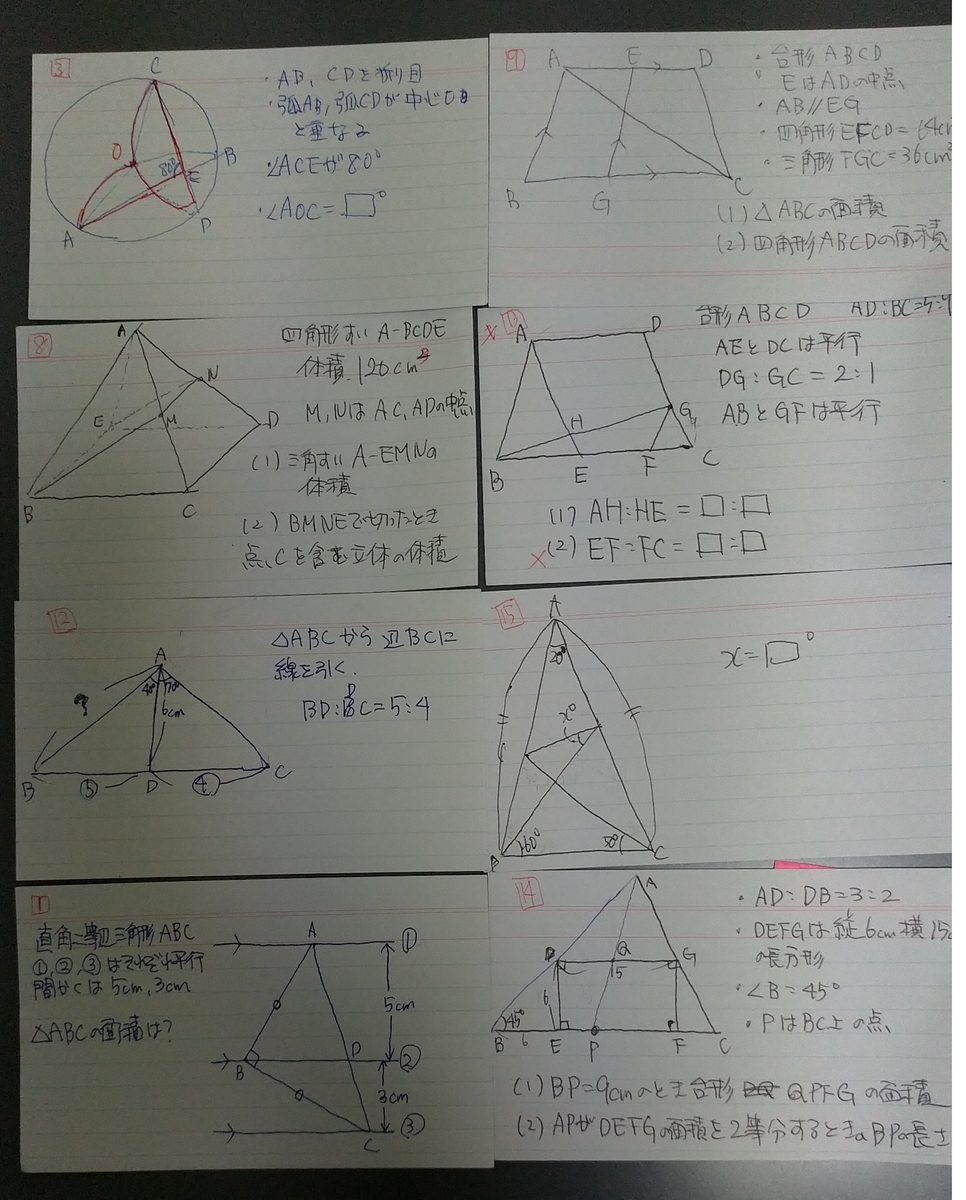 3
・AB、CDを折り目
・弧AB,弧CDが中心O
と重なる
・∠ACEが80°
・∠AOC=□°
C
O
80°
B
E
A
D
9
A
E
D
B
G
C
・台形ABCD
・EはADの中点
・AB//EG
・四角形EFCD=64c
・三角形FGC=36cm²
(1)△ABCの面積
(2)四角形ABCDの面積
8
A
N
E
M
D
B
C
四角形すい A-BCDE
体積 120cm³
M,NはAC,ADの中点
(1)三角すい A-EMNの
体積
(2)BMNEで切ったとき
点Cを含む立体の体積
A
D
H
G
B
E
F
C
台形ABCD AD:BC=5:9
AEとDCは平行
DG:GC=2:1
ABとGFは平行
(1)AH:HE=□:□
(2)EF:FC=□:□
12
A
40°
70°
6cm
?
B
⑤
D
④
C
△ABCから辺BCに
線を引く.
BD:DC=5:4
15
A
20°
x°
60°
50°
B
C
x=□°
1
直角二等辺三角形ABC
①,②,③はそれぞれ平行
間かくは5cm,3cm
△ABCの面積は?
A
①
5cm
B
D
②
3cm
C
③
14
A
D
Q
G
15
6
45°
B
6
E
P
F
C
・AD:DB=3:2
・DEFGは縦6cm横15c
の長方形
・∠B=45°
・PはBC上の点
(1)BP=9cmのとき台形 QPFGの面積
(2)APがDEFGの面積を2等分するときのBPの長さ